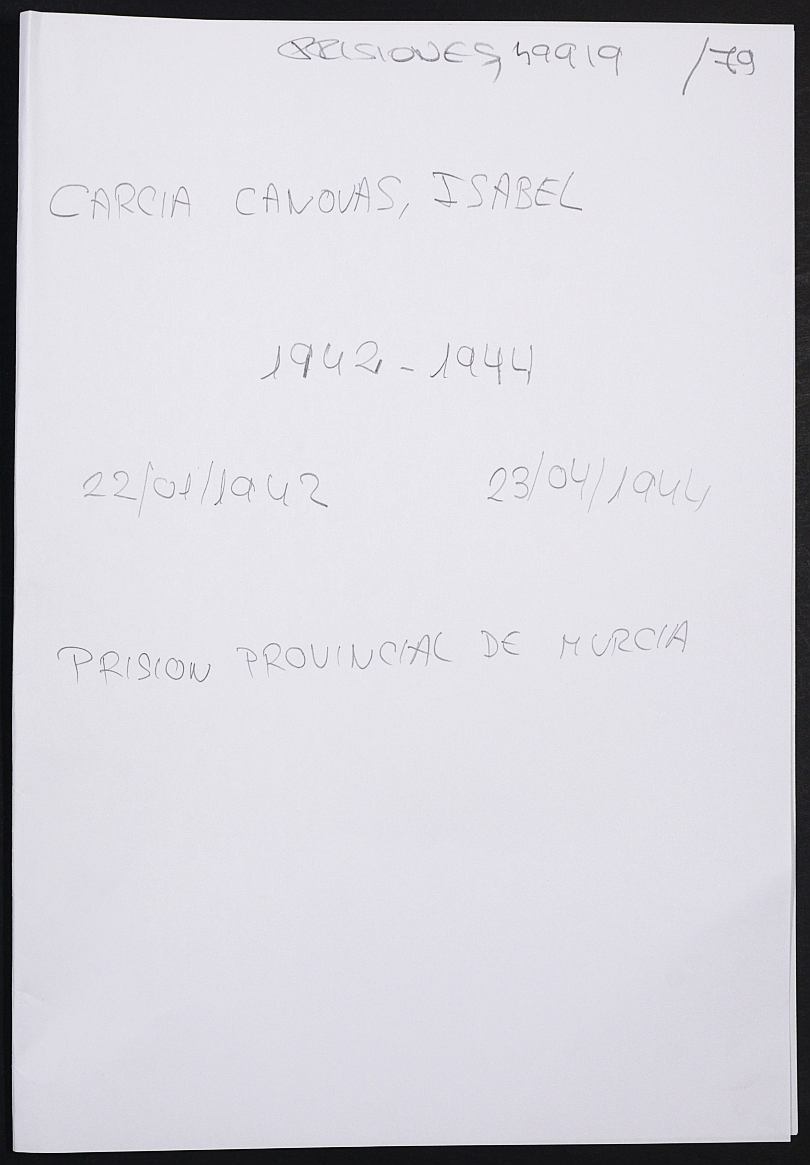 PRISIONES, 49919 /79
GARCIA CANOVAS, ISABEL
1942 - 1944
22/01/1942 23/04/1944
PRISION PROVINCIAL DE MURCIA